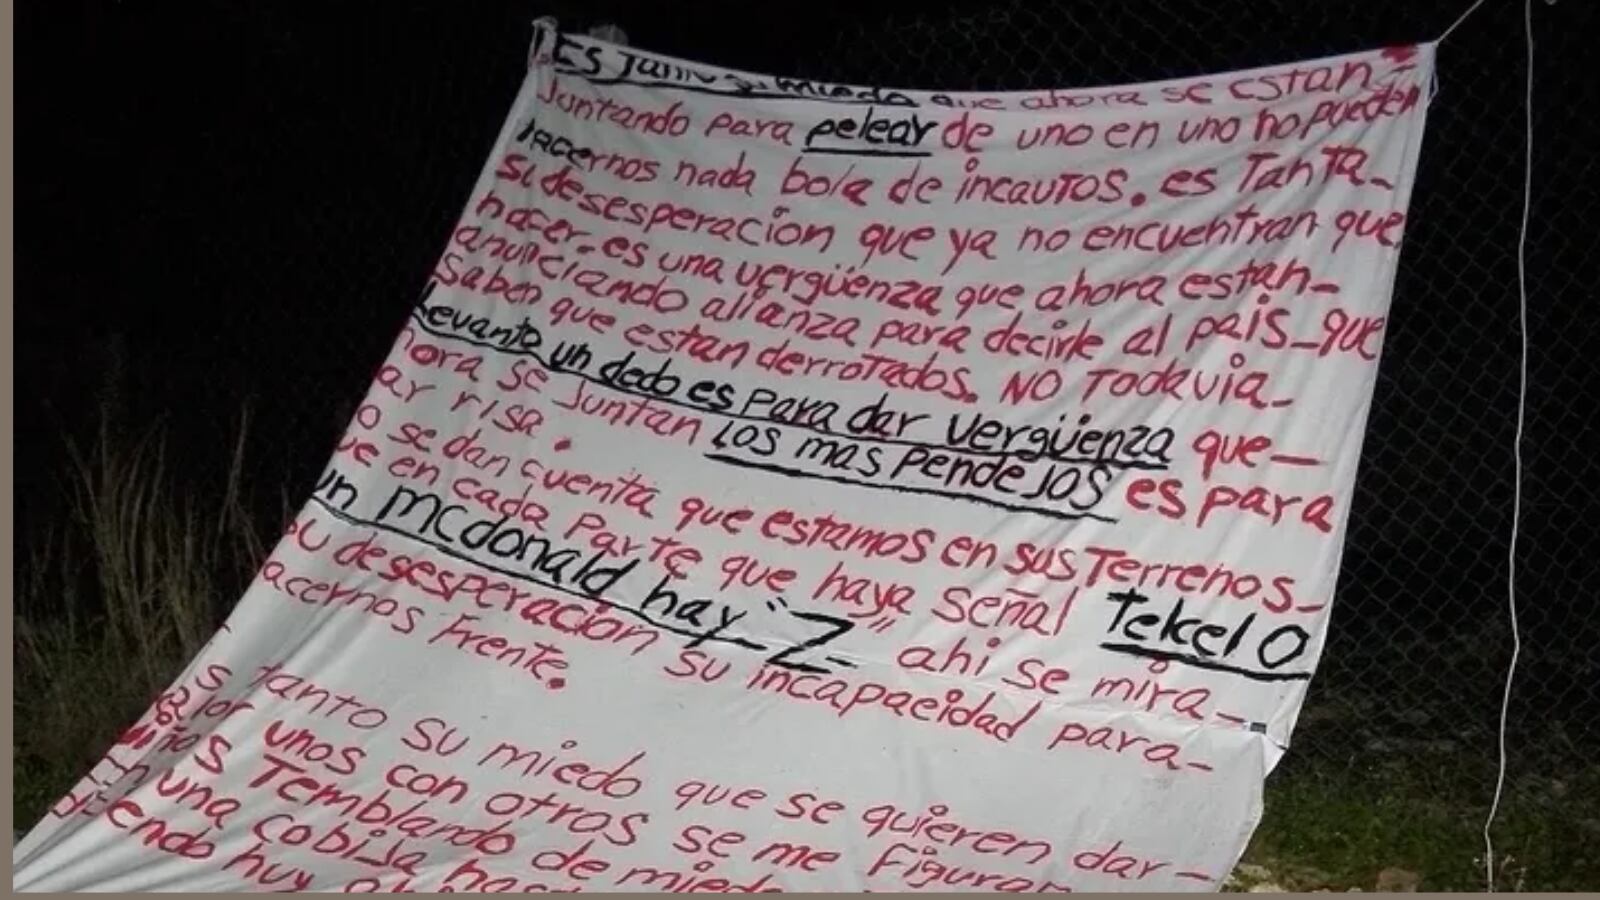 ES Tanto su miedo que ahora se estan-
Juntando para pelear de uno en uno no pueden
hacernos nada bola de incautos. es Tanta-
su desesperación que ya no encuentran que
hacer. es una vergüenza que ahora estan-
anunciando alianza para decirle al pais-que
saben que estan derrotados. NO Todavia-
Levanto un dedo es para dar vergüenza que-
ahora se Juntan LOS mas PendeJOS es para
dar risa.
No se dan cuenta que estamos en sus Terrenos-
que en cada Parte que haya señal Telcel O
un mcdonald hay "Z" ahi se mira-
su desesperación su incapacidad para-
hacernos Frente.
Es tanto su miedo que se quieren dar-
valor unos con otros se me Figuran
niños Temblando de miedo
en una cobija
diciendo huy